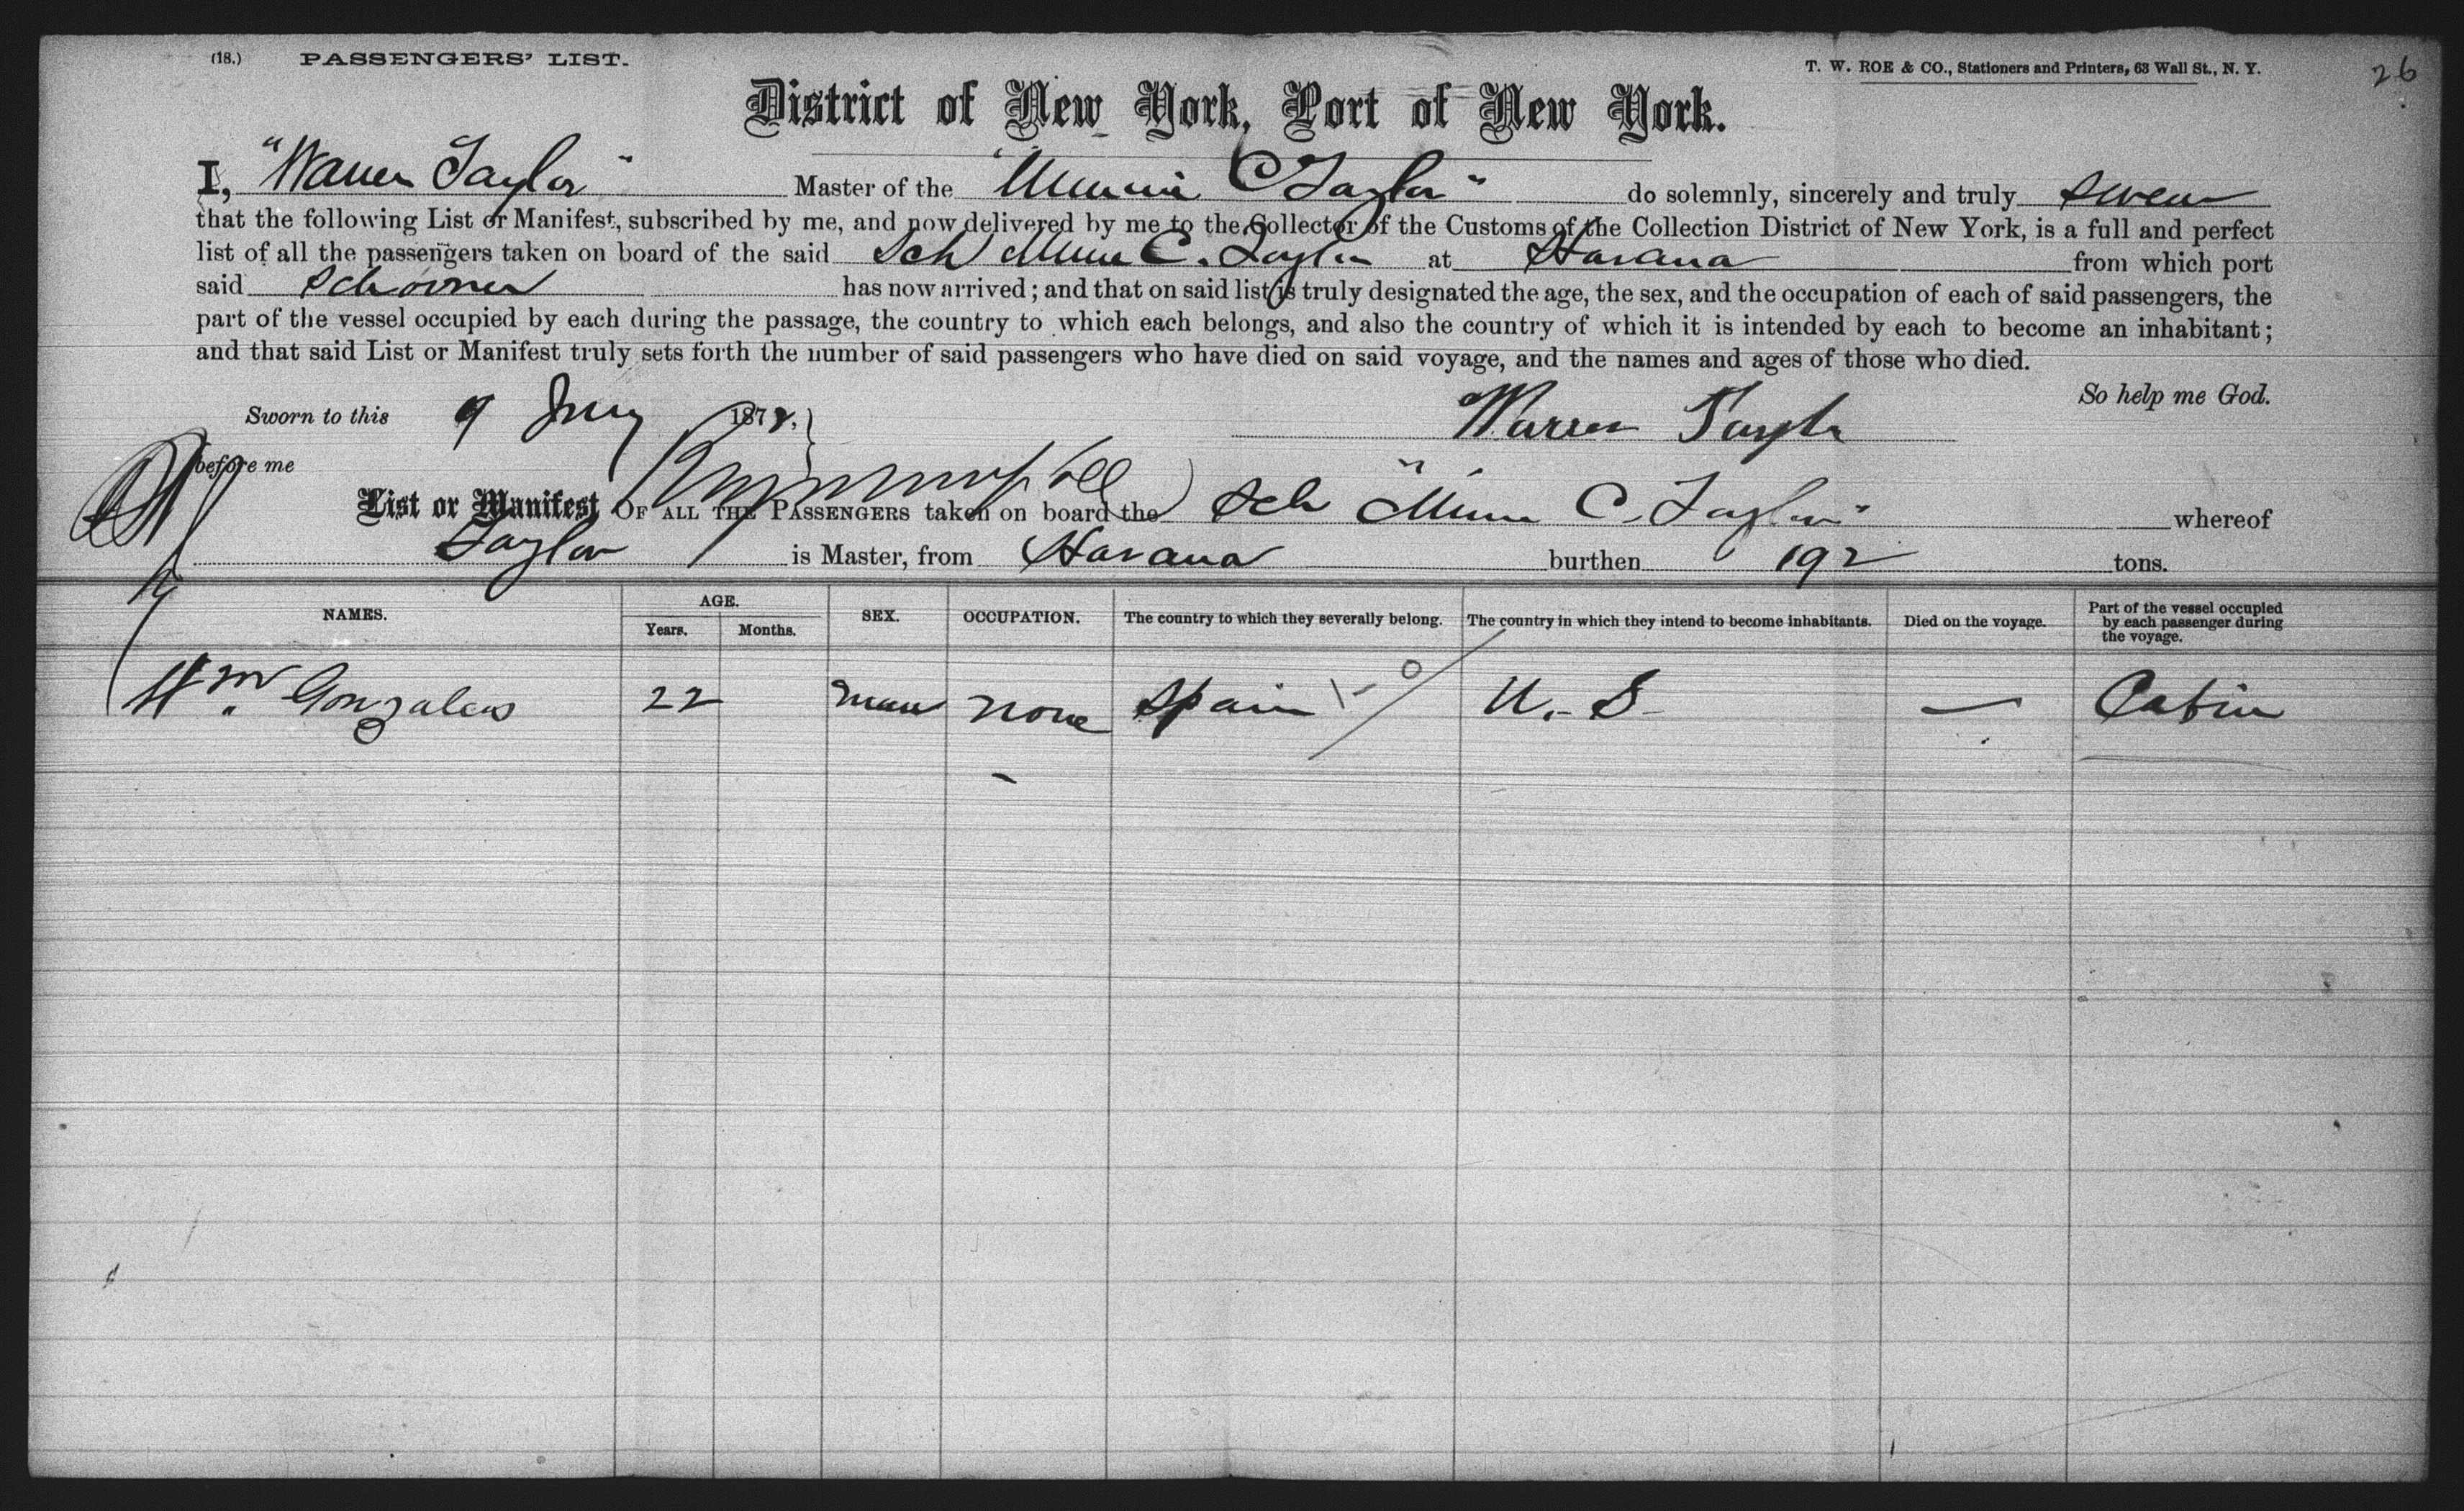 (18.) PASSENGERS' LIST.
T. W. ROE & CO., Stationers and Printers, 63 Wall St., N. Y.
26
District of New York, Port of New York.
I, "Warren Taylor" Master of the "Minnie C Taylor" do solemnly, sincerely and truly swear
that the following List or Manifest, subscribed by me, and now delivered by me to the Collector of the Customs of the Collection District of New York, is a full and perfect
list of all the passengers taken on board of the said Sch Minnie C. Taylor at Havana from which port
said Schooner has now arrived; and that on said list is truly designated the age, the sex, and the occupation of each of said passengers, the
part of the vessel occupied by each during the passage, the country to which each belongs, and also the country of which it is intended by each to become an inhabitant;
and that said List or Manifest truly sets forth the number of said passengers who have died on said voyage, and the names and ages of those who died.
So help me God.
Sworn to this 9 1878,
Warren Taylor
before me
List or Manifest OF ALL THE PASSENGERS taken on board the Sch "Minnie C. Taylor" whereof
Taylor is Master, from Havana burthen 192 tons.
NAMES. AGE. SEX. OCCUPATION. The country to which they severally belong. The country in which they intend to become inhabitants. Died on the voyage. Part of the vessel occupied by each passenger during the voyage.
Years. Months.
Gonzales 22 man none Spain U.S — Cabin